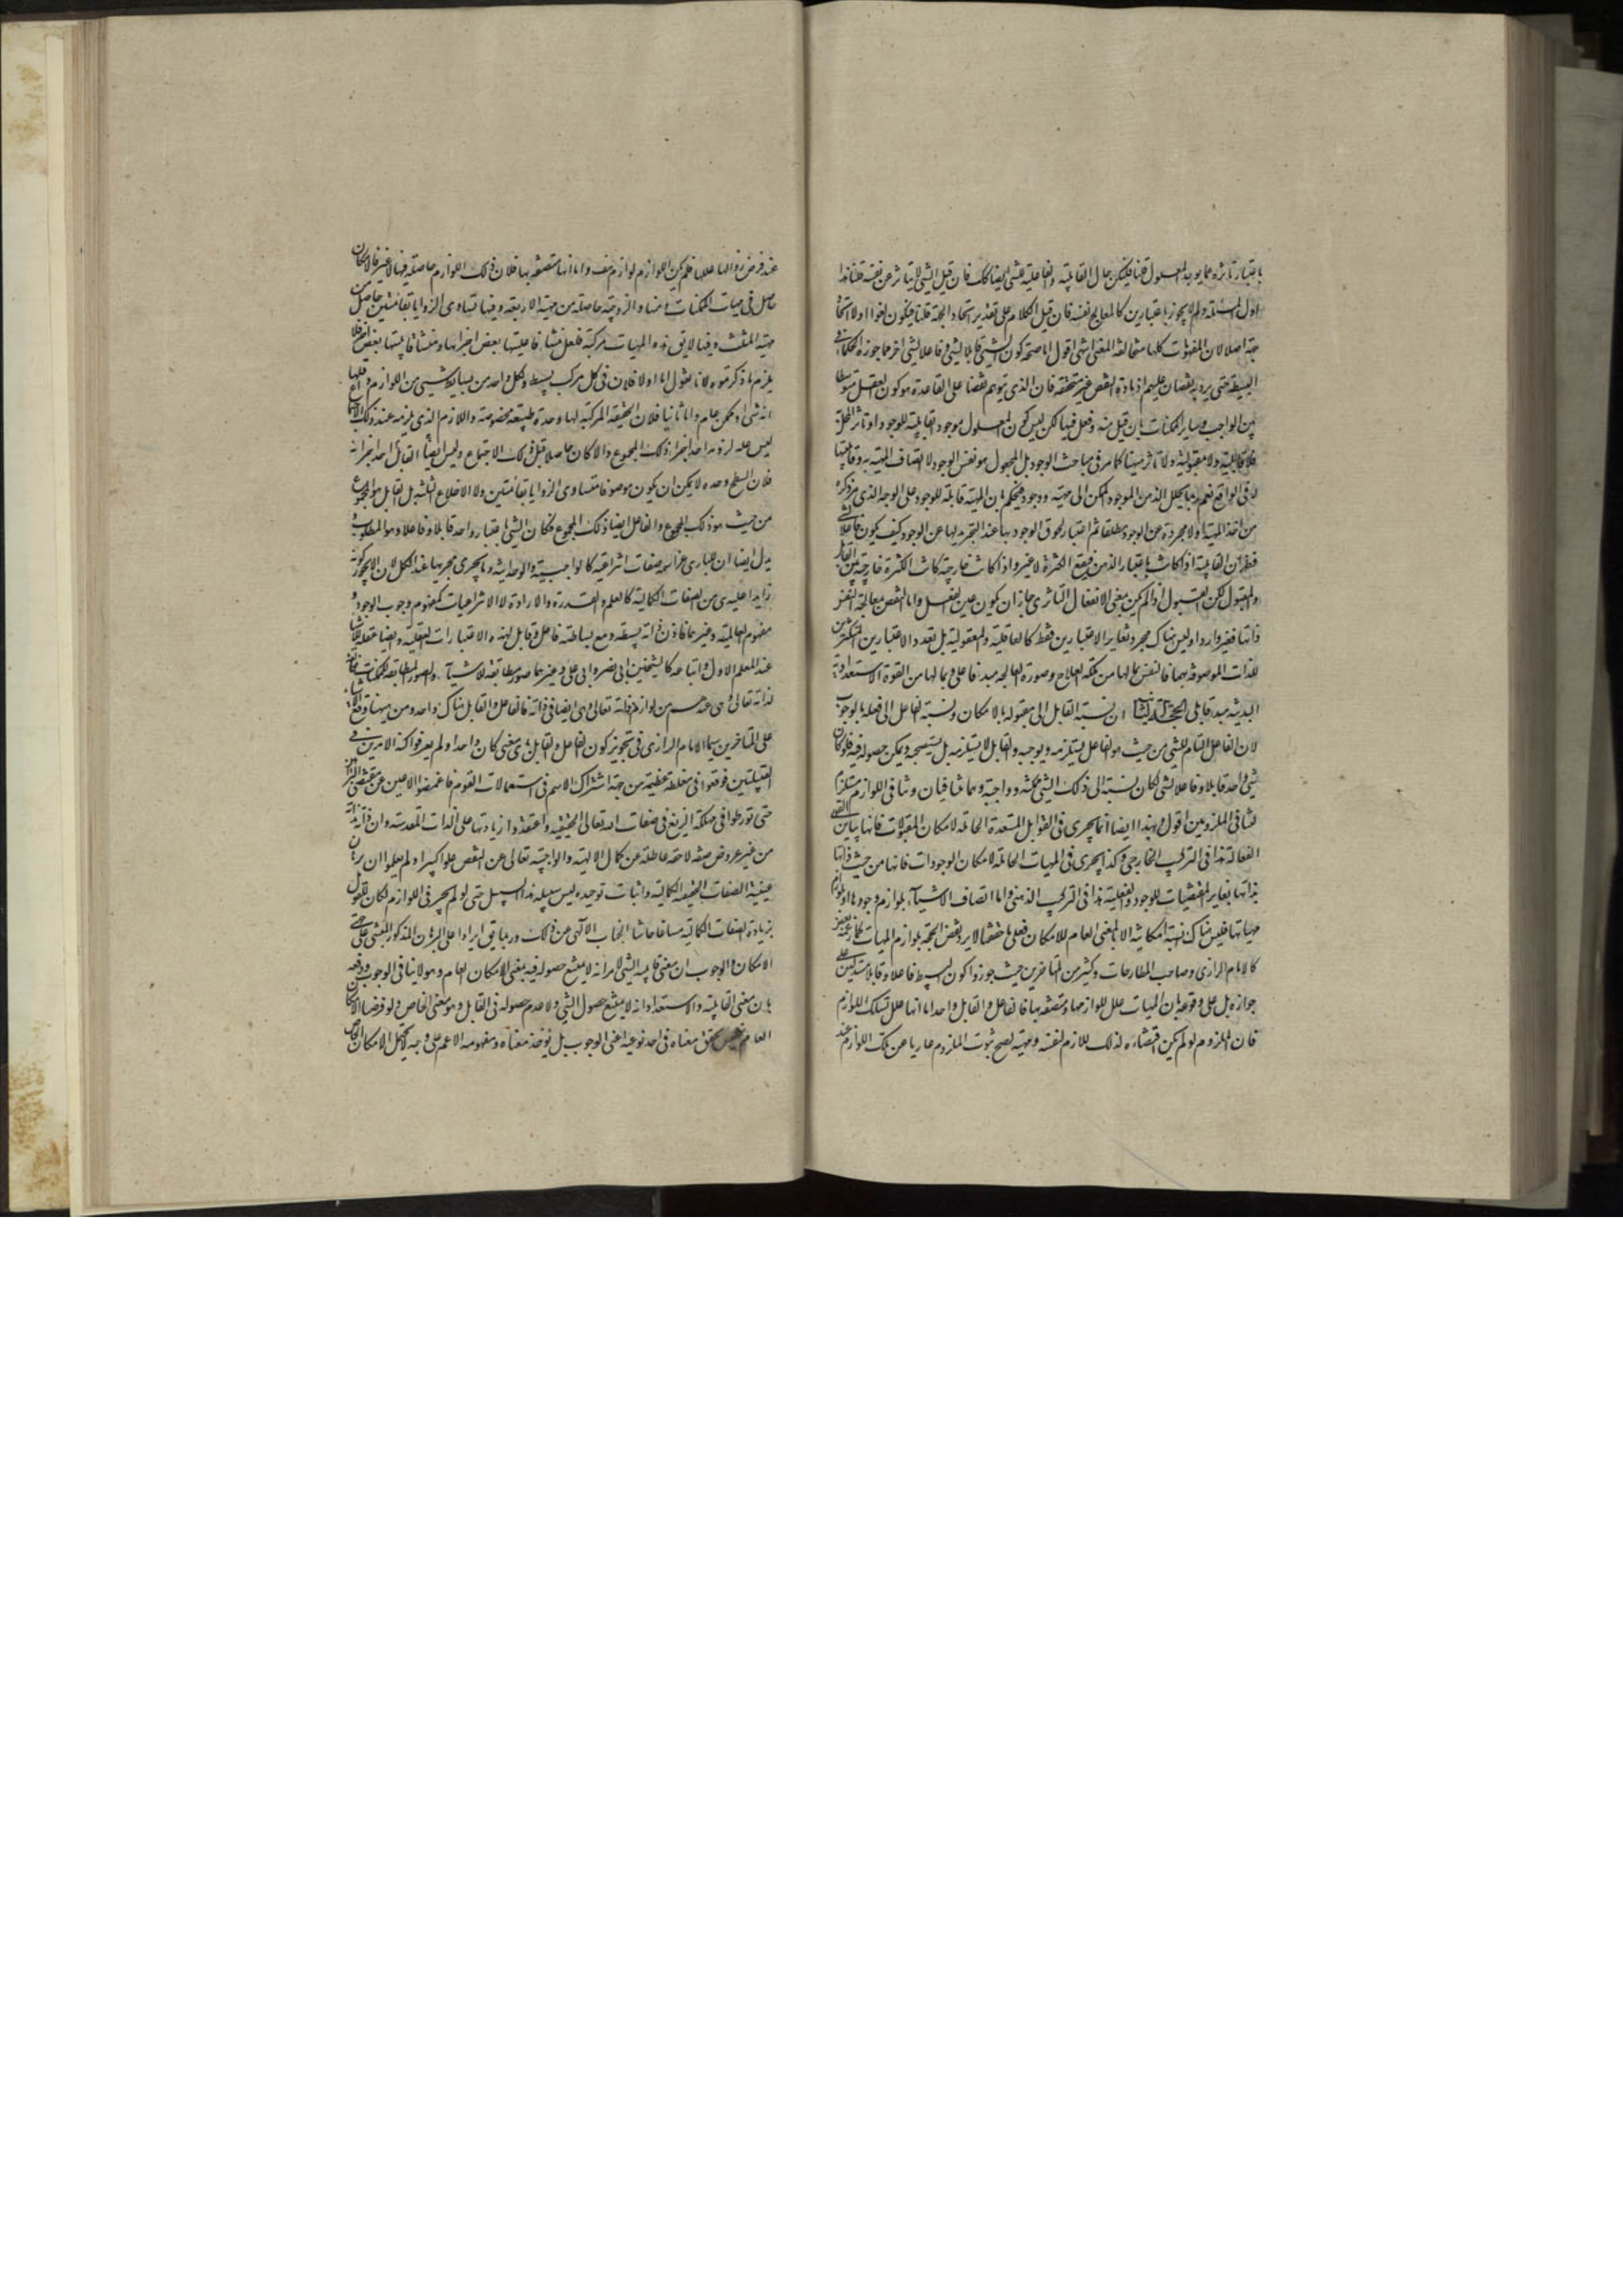 باعتبار تاثره مما يوجد المعلول قلنا فليكن حال القابلية والفاعلية للشي ايضا كك فان قيل الشي لا يتاثر عن نفسه قلنا هذا
اول المسئلة ولم لا يجوز باعتبارين كالمعالج نفسه فان قيل الكلام على تقدير اتحاد الجهة قلنا فيكون لغوا اذ لا اتحاد
جهة اصلا لان المفهومات كلها متخالفة المعنى انتهى اقول اما صحة كون الشي قابلا لشي وفاعلا لشي اخر مما جوزه الحكماء في
البسيط حتى يرد به نقضا عليهم اذ مادة النقض غير متحققة فان الذي يتوهم نقضا على القاعدة هو كون العقل متوسطا
بين الواجب وساير الممكنات بان قبل منه وفعل فيها لكن ليس كون المعلول موجودا قابليته للوجود او تاثر الماهية
فلا قابلية ولا مقبولية ولا تاثر ههنا كما مر في مباحث الوجود بل المجعول هو نفس الوجود لا اتصاف الماهية به وقابليتها
له في الواقع نعم ربما يحلل الذهن الموجود الممكن الى مهية ووجود فيحكم بان المهية قابلة للوجود على الوجه الذي مر ذكره
من اخذ المهية اولا مجردة عن الوجود مطلقا ثم اعتبار لحوق الوجود بها عند التجريد لها عن الوجود كيف يكون فاعلا
فظهر ان القابلية اذا كانت باعتبار الذهن فيقع الكثرة لا غير واذا كانت خارجية كانت الكثرة خارجية بين القابل
والمقبول لكن القبول اذا لم يكن بمعنى الانفعال التاثري جاز ان يكون عين الفعل واما النقض بمعالجة النفس
ذاتها فغير وارد اذ ليس هناك مجرد تغاير الاعتبارين فقط كالعاقلية والمعقولية بل تعدد الاعتبارين المتكثرين
للذات الموصوفة بهما فالنفس بما لها من ملكة العلاج وصورة المعالجة مبدء فاعلي وبما لها من القوة الاستعدادية
البدنية مبدء قابلي الحجة الثانية ان نسبة القابل الى مقبوله بالامكان ونسبة الفاعل الى فعله بالوجوب
لان الفاعل التام للشي من حيث هو فاعل يستلزمه ويوجبه والقابل لا يستلزمه بل يستصحه ويمكن حصوله فيه فلو كان
شي واحد قابلا وفاعلا لشي لكان نسبته الى ذلك الشي ممكنة وواجبة وهما متنافيان وتنافي اللوازم مستلزم
لتنافي الملزومين اقول وهذا ايضا انما يجري في القوابل المستعدة الحاملة لامكان المقبولات فانها يباين القوى
الفعالة هذا في التركيب الخارجي وكذا يجري في المهيات الحاملة لامكان الوجودات فانها من حيث ذاتها
بذاتها يغاير المقتضيات للوجود والفعلية هذا في التركيب الذهني واما اتصاف الاشياء بلوازم وجودها او لوازم
مهياتها فليس هناك نسبة امكانية الا بالمعنى العام للامكان فعلى ما حققنا لا يرد نقض الحجة بلوازم المهيات كما زعمه بعض
كالامام الرازي وصاحب المطارحات وكثير من المتاخرين حيث جوزوا كون البسيط فاعلا وقابلا مستدلين على
جوازه بل على وقوعه بان المهيات علل للوازمها ومتصفة بها فالفاعل والقابل واحد اما انها علل لتلك اللوازم
فان الملزوم لو لم يكن اقتضاؤه لذلك اللازم لنفسه ومهيته لصح ثبوت الملزوم عاريا عن تلك اللوازم عند
عند فرض زوال ما عللها فلم يكن اللوازم لوازم هف واما انها متصفة بها فلان تلك اللوازم حاصلة فيها لا غير فالامكان
حاصل في مهيات الممكنات ومنها والزوجية حاصلة من مهية الاربعة وفيها وتساوي الزوايا لقائمتين حاصل من
مهية المثلث وفيها لا يق هذه المهيات مركبة فلعل منشا فاعليتها بعض اجزائها ومنشا قابليتها بعض اخر فلا
يلزم ما ذكرتموه لانا نقول اما اولا فلان في كل مركب بسيط ولكل واحد من بسايطه شي من اللوازم واقلها
انه شي او ممكن عام واما ثانيا فلان الحقيقة المركبة لها وحدة طبيعية مخصوصة واللازم الذي يلزمه عند ذلك الاجتماع
ليس علة لزومه احد اجزاء ذلك المجموع والا كان حاصلا قبل ذلك الاجتماع وليس ايضا القابل احد اجزائه
فلان السطح وحده لا يمكن ان يكون موصوفا بتساوي الزوايا لقائمتين ولا الاضلاع الثلثة بل القابل هو المجموع
من حيث هو ذلك المجموع والفاعل ايضا ذلك المجموع فكان الشي باعتبار واحد قابلا وفاعلا وهو المطلوب و
يدل ايضا ان للباري عز اسمه صفات انتزاعية كالواجبية والوحدانية وما يجري مجريها عند الكل لان لا يجوز كونه
زايدا عليه من الصفات الكمالية كالعلم والقدرة والارادة لا الانتزاعيات كمفهوم وجوب الوجود و
مفهوم العالمية وغيرهما فاذن ذاته بسيطة ومع بساطته فاعل وقابل لهذه الاعتبارات العقلية وايضا عقله للاشياء
عند المعلم الاول واتباعه كالشيخين ابي نصر وابي علي وغيرهما صور مطابقة للاشياء والصور المطابقة للممكنات مخالفة
لذاته تعالى وهي عندهم من لوازم ذاته تعالى وهي ايضا في ذاته فالفاعل والقابل هناك واحد ومن ههنا وقع الاشتباه
على المتاخرين سيما الامام الرازي في تجويز كون الفاعل والقابل باي معنى كان واحدا ولم يعرفوا كنه الامرين في
القبيلتين فوقعوا في مغلطة عظيمة من جهة اشتراك الاسم في استعمالات القوم فاغمضوا الاعين عن مقتضى البرهان
حتى تورطوا في مهلكة الزيغ في صفات الله تعالى الحقيقية واعتقدوا زيادتها على الذات المقدسة وان ذاته بذاته
من غير عروض صفة لاحقة عاطلة عن كمال الالهية والواجبية تعالى عن النقص علوا كبيرا ولم يعلموا ان برهان
عينية الصفات الحقيقية الكمالية واثبات توحيده ليس سبيله هذا السبيل حتى لو لم يجر في اللوازم لكان للقول
بزيادة الصفات الكمالية مساغا حاشا الجناب الالهي عن ذلك وربما يق ايرادا على البرهان المذكور المبتني على جهتي
الامكان والوجوب ان معنى قابلية الشي لامر انه لا يمتنع حصوله فيه بمعنى الامكان العام وهو لا ينافي الوجوب ودفعه
بان معنى القابلية والاستعداد انه لا يمتنع حصول الشي ولا عدم حصوله في القابل وهو معنى الخاص ولو فرضنا الامكان
العام فليس تحقق معناه في احد نوعيه اعني الوجوب بل يؤخذ معناه ومفهومه الاعم على وجه يحتمل الامكان الخاص